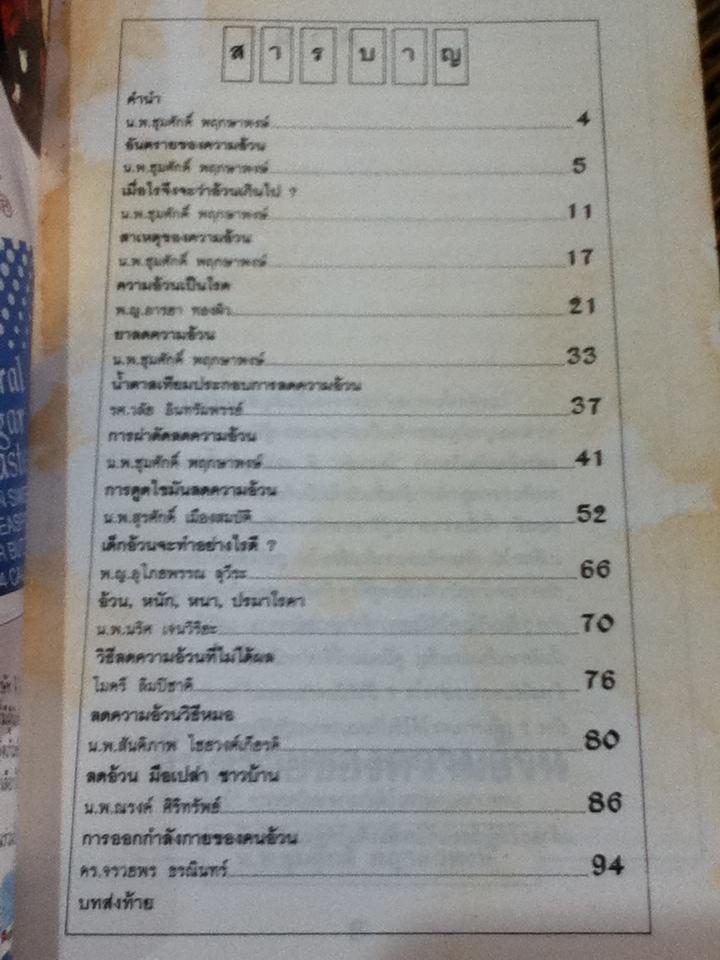 สารบาญ
คำนำ
น.พ.ชุมศักดิ์ พฤกษาพงษ์ 4
อันตรายของความอ้วน
น.พ.ชุมศักดิ์ พฤกษาพงษ์ 5
เมื่อไรจึงจะว่าอ้วนเกินไป ?
น.พ.ชุมศักดิ์ พฤกษาพงษ์ 11
สาเหตุของความอ้วน
น.พ.ชุมศักดิ์ พฤกษาพงษ์ 17
ความอ้วนเป็นโรค
พ.ญ.อารยา ทองผิว 21
ยาลดความอ้วน
น.พ.ชุมศักดิ์ พฤกษาพงษ์ 33
น้ำตาลเทียมประกอบการลดความอ้วน
รศ.วลัย อินทรัมพรรย์ 37
การผ่าตัดลดความอ้วน
น.พ.ชุมศักดิ์ พฤกษาพงษ์ 41
การดูดไขมันลดความอ้วน
น.พ.สุรศักดิ์ เมืองสมบัติ 52
เด็กอ้วนจะทำอย่างไรดี ?
พ.ญ.อุไภยพรรณ ลุวีระ 66
อ้วน, หนัก, หนา, ปรมาโรคา
น.พ.นริศ เจนวิริยะ 70
วิธีลดความอ้วนที่ไม่ได้ผล
ไมตรี ลิมปิชาติ 76
ลดความอ้วนวิธีหมอ
น.พ.สันติภาพ ไชยวงศ์เกียรติ 80
ลดอ้วน มือเปล่า ชาวบ้าน
น.พ.ณรงค์ ศิริทรัพย์ 86
การออกกำลังกายของคนอ้วน
ดร.จรวยพร ธรณินทร์ 94
บทส่งท้าย